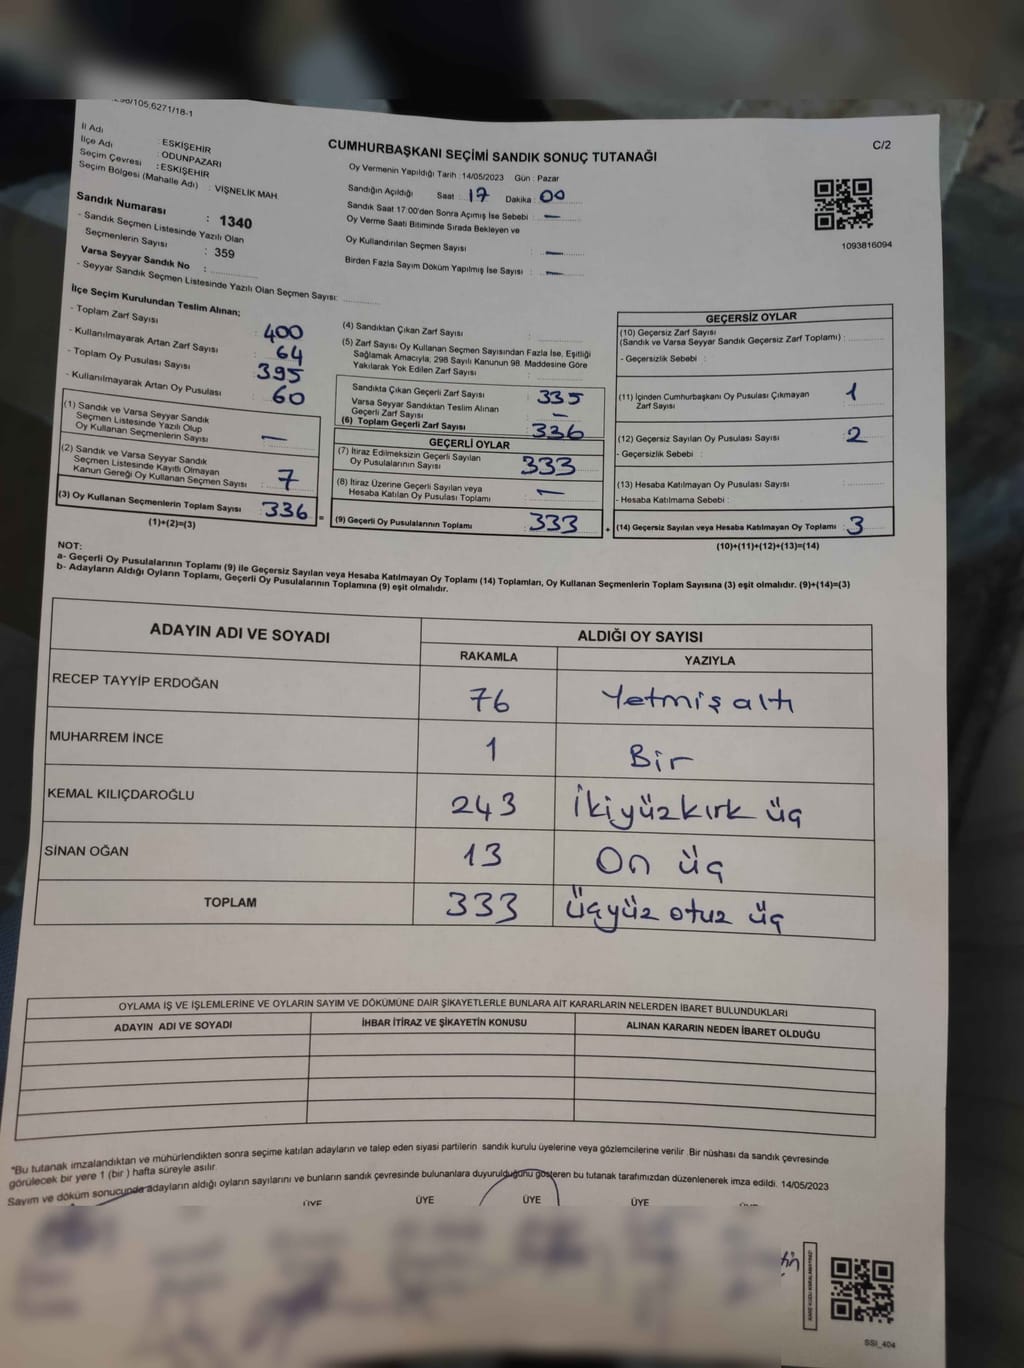 298/105,6271/18-1
C/2
İl Adı : ESKİŞEHİR
İlçe Adı : ODUNPAZARI
Seçim Çevresi : ESKİŞEHİR
Seçim Bölgesi (Mahalle Adı) : VİŞNELİK MAH.
Sandık Numarası : 1340
- Sandık Seçmen Listesinde Yazılı Olan
Seçmenlerin Sayısı : 359
Varsa Seyyar Sandık No :
- Seyyar Sandık Seçmen Listesinde Yazılı Olan Seçmen Sayısı:
CUMHURBAŞKANI SEÇİMİ SANDIK SONUÇ TUTANAĞI
Oy Vermenin Yapıldığı Tarih :14/05/2023 Gün : Pazar
Sandığın Açıldığı Saat : 17 Dakika : 00
Sandık Saat 17:00'den Sonra Açımış İse Sebebi : —
Oy Verme Saati Bitiminde Sırada Bekleyen ve
Oy Kullandırılan Seçmen Sayısı : —
Birden Fazla Sayım Döküm Yapılmış İse Sayısı : —
1093816094
İlçe Seçim Kurulundan Teslim Alınan;
- Toplam Zarf Sayısı : 400
- Kullanılmayarak Artan Zarf Sayısı : 64
- Toplam Oy Pusulası Sayısı : 395
- Kullanılmayarak Artan Oy Pusulası : 60
(1) Sandık ve Varsa Seyyar Sandık
Seçmen Listesinde Yazılı Olup
Oy Kullanan Seçmenlerin Sayısı : —
(2) Sandık ve Varsa Seyyar Sandık
Seçmen Listesinde Kayıtlı Olmayan
Kanun Gereği Oy Kullanan Seçmen Sayısı : 7
(3) Oy Kullanan Seçmenlerin Toplam Sayısı : 336 =
(1)+(2)=(3)
(4) Sandıktan Çıkan Zarf Sayısı :
(5) Zarf Sayısı Oy Kullanan Seçmen Sayısından Fazla İse, Eşitliği
Sağlamak Amacıyla, 298 Sayılı Kanunun 98. Maddesine Göre
Yakılarak Yok Edilen Zarf Sayısı :
Sandıkta Çıkan Geçerli Zarf Sayısı : 335
Varsa Seyyar Sandıktan Teslim Alınan
Geçerli Zarf Sayısı : —
(6) Toplam Geçerli Zarf Sayısı : 336
GEÇERLİ OYLAR
(7) İtiraz Edilmeksizin Geçerli Sayılan
Oy Pusulalarının Sayısı : 333
(8) İtiraz Üzerine Geçerli Sayılan veya
Hesaba Katılan Oy Pusulası Toplamı : —
(9) Geçerli Oy Pusulalarının Toplamı : 333 +
GEÇERSİZ OYLAR
(10) Geçersiz Zarf Sayısı
(Sandık ve Varsa Seyyar Sandık Geçersiz Zarf Toplamı) :
- Geçersizlik Sebebi :
(11) İçinden Cumhurbaşkanı Oy Pusulası Çıkmayan
Zarf Sayısı : 1
(12) Geçersiz Sayılan Oy Pusulası Sayısı : 2
- Geçersizlik Sebebi :
(13) Hesaba Katılmayan Oy Pusulası Sayısı :
- Hesaba Katılmama Sebebi :
(14) Geçersiz Sayılan veya Hesaba Katılmayan Oy Toplamı : 3
(10)+(11)+(12)+(13)=(14)
NOT:
a- Geçerli Oy Pusulalarının Toplamı (9) ile Geçersiz Sayılan veya Hesaba Katılmayan Oy Toplamı (14) Toplamları, Oy Kullanan Seçmenlerin Toplam Sayısına (3) eşit olmalıdır. (9)+(14)=(3)
b- Adayların Aldığı Oyların Toplamı, Geçerli Oy Pusulalarının Toplamına (9) eşit olmalıdır.
ADAYIN ADI VE SOYADI ALDIĞI OY SAYISI
RAKAMLA YAZIYLA
RECEP TAYYİP ERDOĞAN 76 Yetmiş altı
MUHARREM İNCE 1 Bir
KEMAL KILIÇDAROĞLU 243 İkiyüzkırk üç
SİNAN OĞAN 13 On üç
TOPLAM 333 Üçyüz otuz üç
OYLAMA İŞ VE İŞLEMLERİNE VE OYLARIN SAYIM VE DÖKÜMÜNE DAİR ŞİKAYETLERLE BUNLARA AİT KARARLARIN NELERDEN İBARET BULUNDUKLARI
ADAYIN ADI VE SOYADI İHBAR İTİRAZ VE ŞİKAYETİN KONUSU ALINAN KARARIN NEDEN İBARET OLDUĞU
"Bu tutanak imzalandıktan ve mühürlendikten sonra seçime katılan adayların ve talep eden siyasi partilerin sandık kurulu üyelerine veya gözlemcilerine verilir .Bir nüshası da sandık çevresinde
görülecek bir yere 1 (bir ) hafta süreyle asılır.
Sayım ve döküm sonucunda adayların aldığı oyların sayılarını ve bunların sandık çevresinde bulunanlara duyurulduğunu gösteren bu tutanak tarafımızdan düzenlenerek imza edildi. 14/05/2023
ÜYE ÜYE ÜYE ÜYE
SSI_404